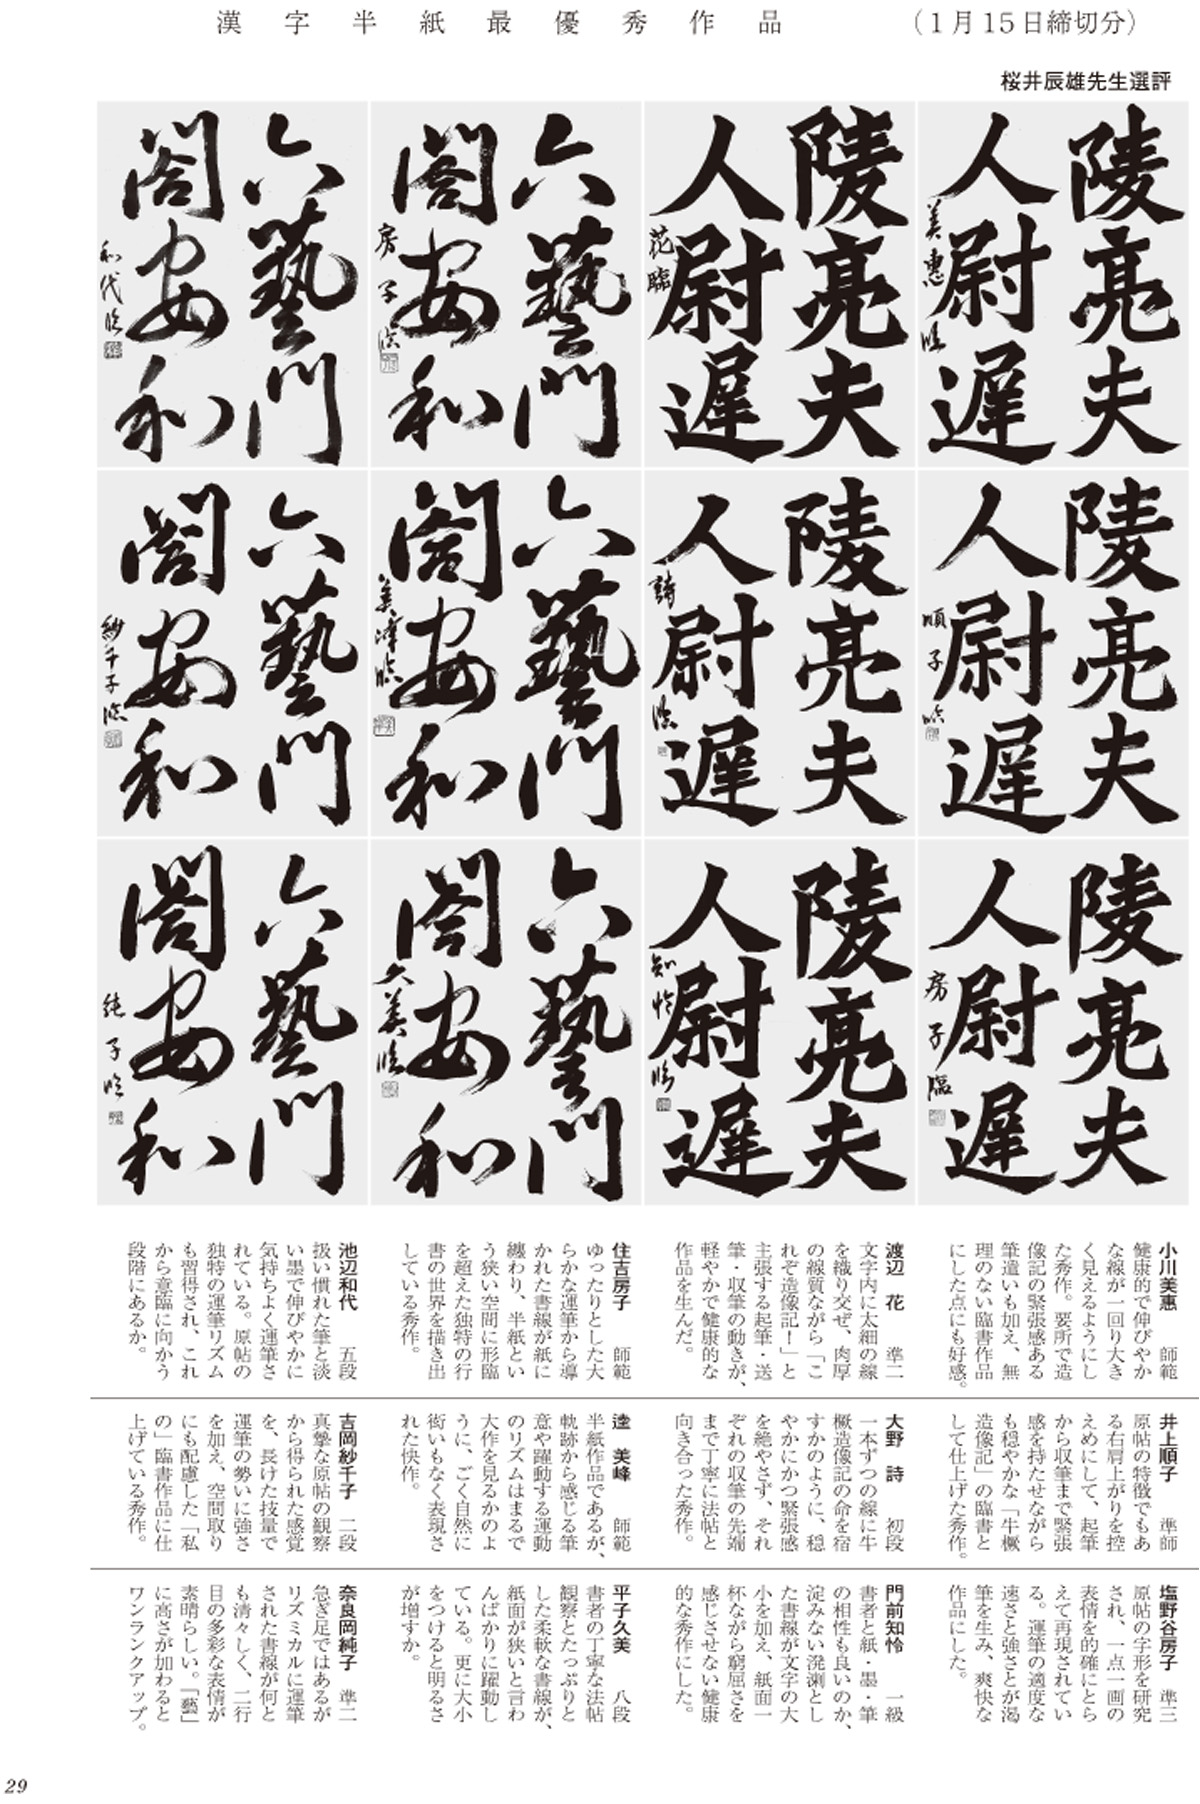 漢字半紙最優秀作品　（1月15日締切分）
桜井辰雄先生選評
陵亮夫
人尉遅
美恵臨
陵亮夫
人尉遅
花臨
六藝門
閤安和
房子臨
六藝門
閤安和
和代臨
陵亮夫
人尉遅
順子臨
陵亮夫
人尉遅
詩臨
六藝門
閤安和
美峰臨
六藝門
閤安和
紗千子臨
陵亮夫
人尉遅
房子臨
陵亮夫
人尉遅
知怜臨
六藝門
閤安和
久美臨
六藝門
閤安和
純子臨
小川美惠　師範
健康的で伸びやか
な線が一回り大き
く見えるようにし
た秀作。要所で造
像記の緊張感ある
筆遣いも加え、無
理のない臨書作品
にした点にも好感。
渡辺　花　準二
文字内に太細の線
を織り交ぜ、肉厚
の線質ながら「こ
れぞ造像記！」と
主張する起筆・送
筆・収筆の動きが、
軽やかで健康的な
作品を生んだ。
住吉房子　師範
ゆったりとした大
らかな運筆から導
かれた書線が紙に
纏わり、半紙とい
う狭い空間に形臨
を超えた独特の行
書の世界を描き出
している秀作。
池辺和代　五段
扱い慣れた筆と淡
い墨で伸びやかに
気持ちよく運筆さ
れている。原帖の
独特の運筆リズム
も習得され、これ
から意臨に向かう
段階にあるか。
井上順子　準師
原帖の特徴でもあ
る右肩上がりを控
えめにして、起筆
から収筆まで緊張
感を持たせながら
も穏やかな「牛橛
造像記」の臨書と
して仕上げた秀作。
大野　詩　初段
一本ずつの線に牛
橛造像記の命を宿
すかのように、穏
やかにかつ緊張感
を絶やさず、それ
ぞれの収筆の先端
まで丁寧に法帖と
向き合った秀作。
逵　美峰　師範
半紙作品であるが、
軌跡から感じる筆
意や躍動する運動
のリズムはまるで
大作を見るかのよ
うに、ごく自然に
衒いもなく表現さ
れた快作。
吉岡紗千子　二段
真摯な原帖の観察
から得られた感覚
を、長けた技量で
運筆の勢いに強さ
を加え、空間取り
にも配慮した「私
の」臨書作品に仕
上げている秀作。
塩野谷房子　準三
原帖の字形を研究
され、一点一画の
表情を的確にとら
えて再現されてい
る。運筆の適度な
速さと強さとが渇
筆を生み、爽快な
作品にした。
門前知怜　一級
書者と紙・墨・筆
の相性も良いのか、
淀みない溌溂とし
た書線が文字の大
小を加え、紙面一
杯ながら窮屈さを
感じさせない健康
的な秀作にした。
平子久美　八段
書者の丁寧な法帖
観察とたっぷりと
した柔軟な書線が、
紙面が狭いと言わ
んばかりに躍動し
ている。更に大小
をつけると明るさ
が増すか。
奈良岡純子　準二
急ぎ足ではあるが
リズミカルに運筆
された書線が何と
も清々しく、二行
目の多彩な表情が
素晴らしい。「藝」
に高さが加わると
ワンランクアップ。
29